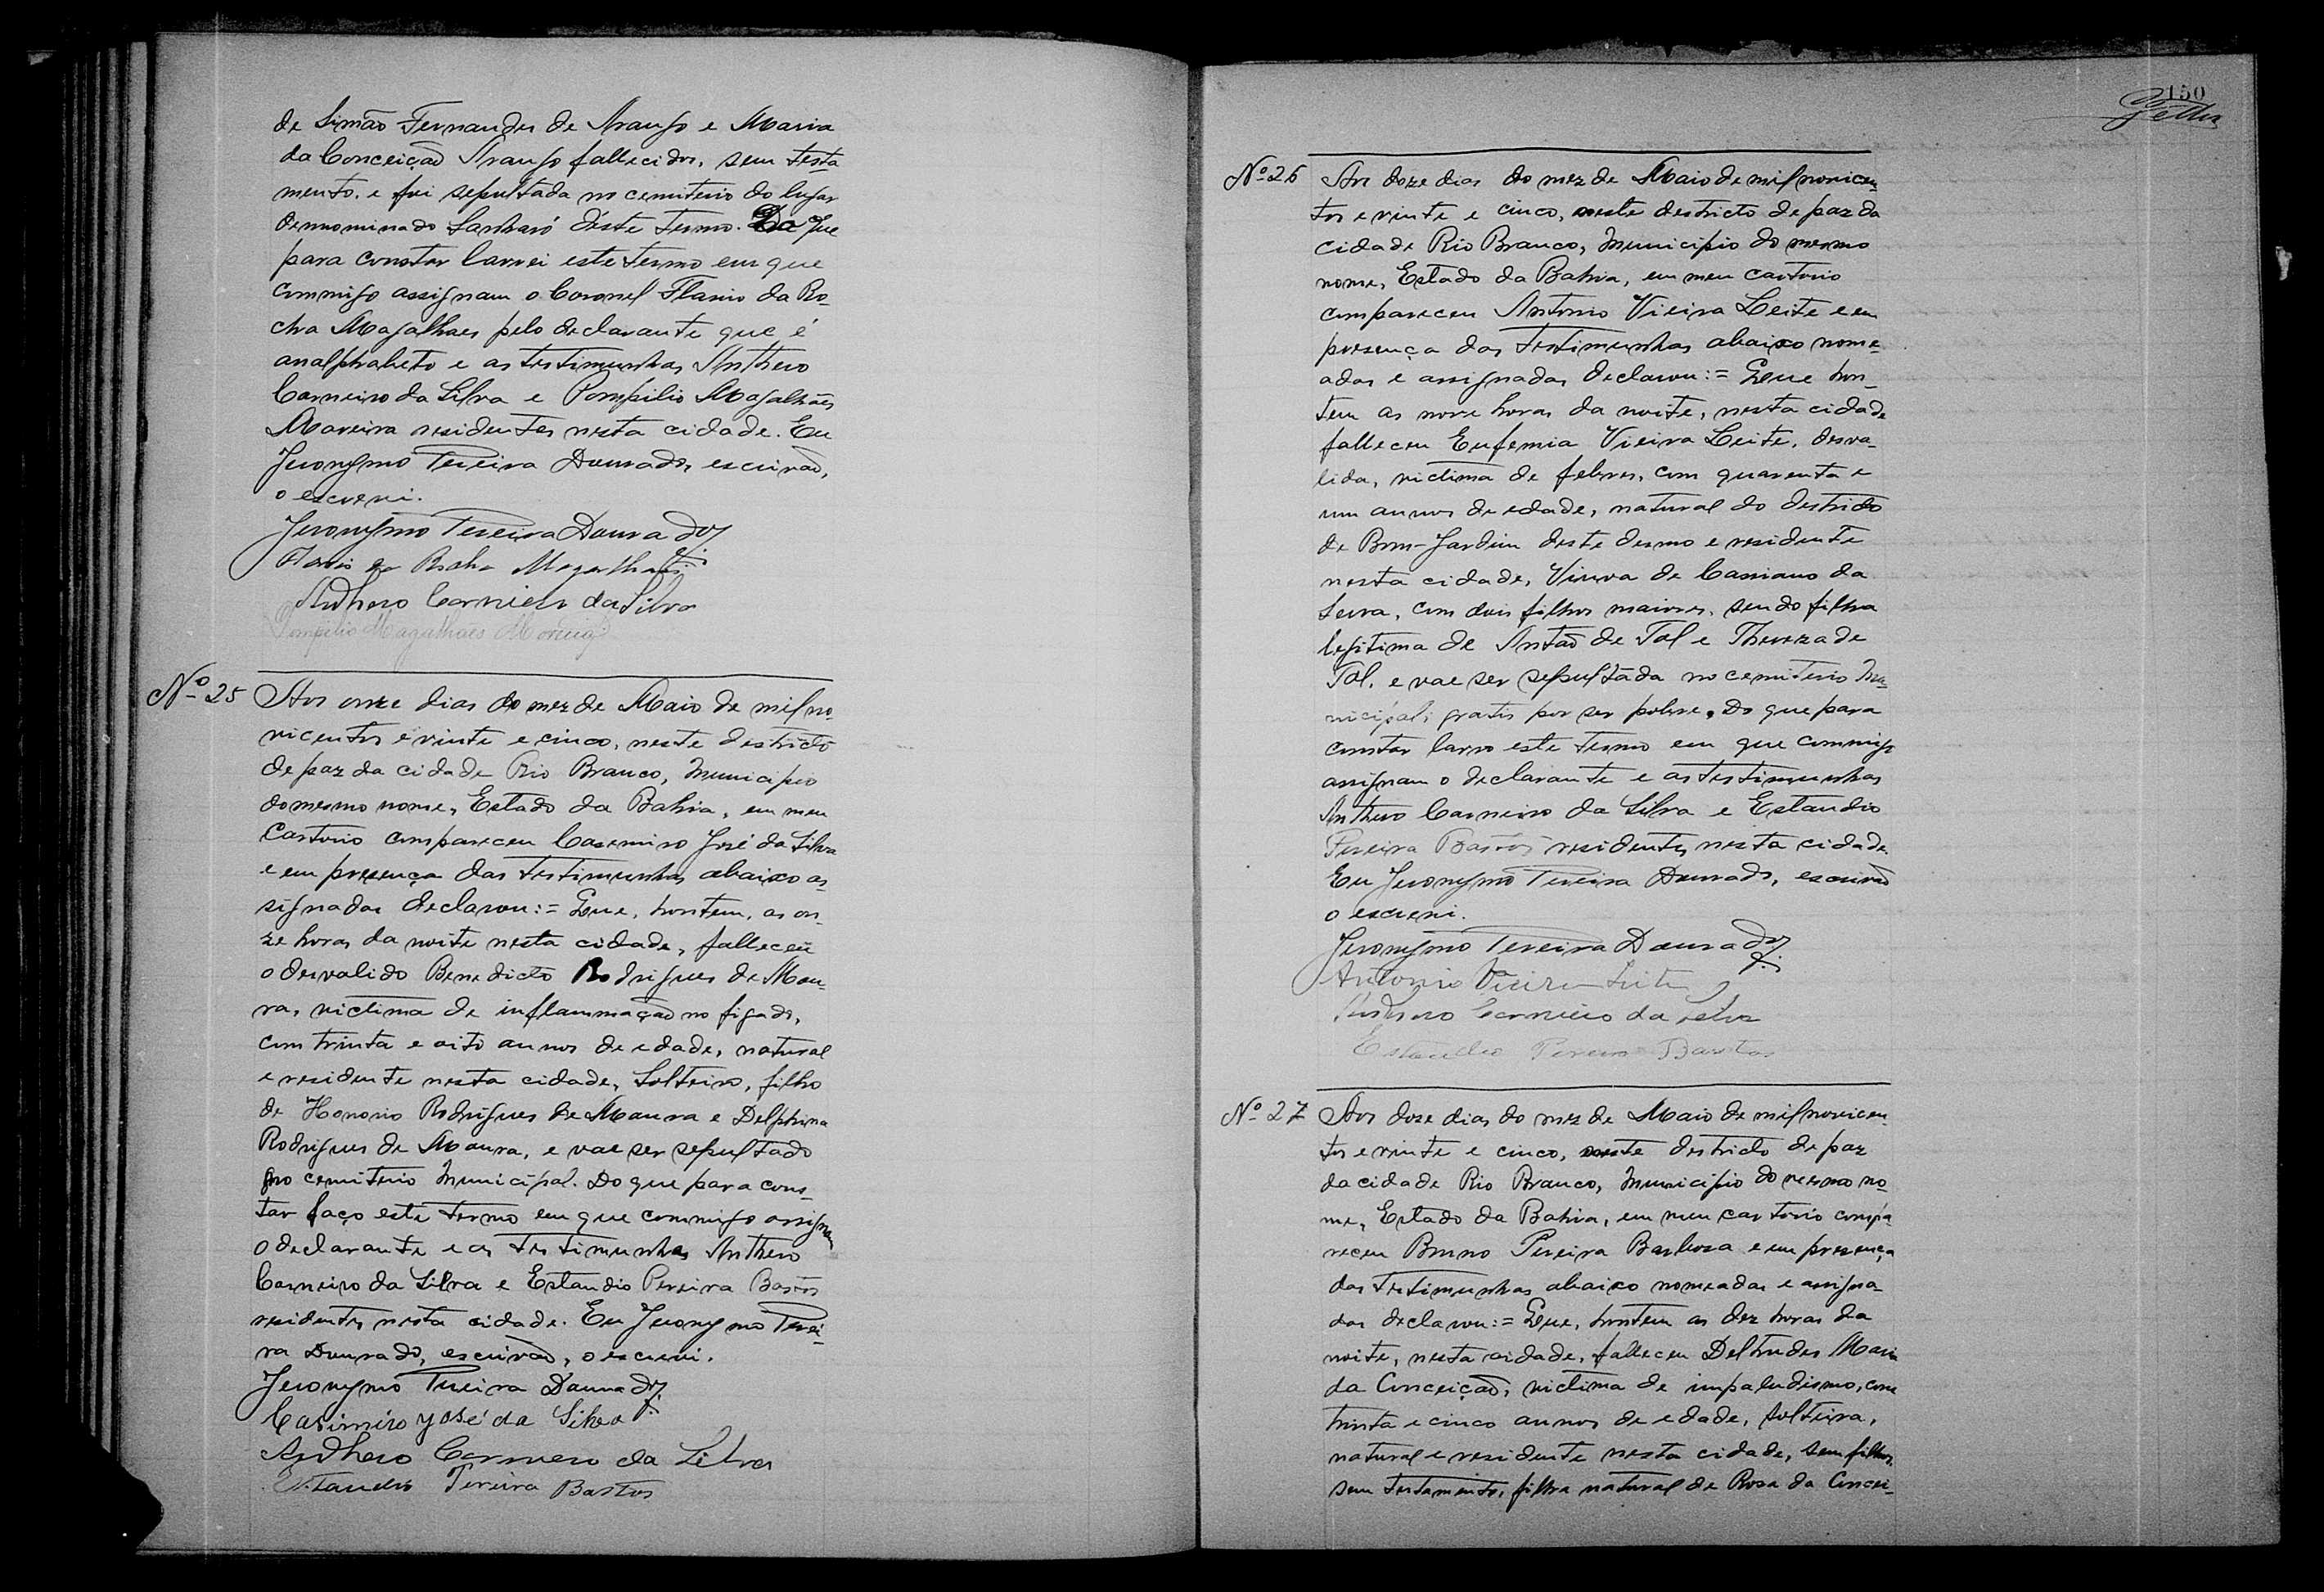 de Simão Fernandes de Araujo e Maria
da Conceição Araujo fallecidos, sem testa
mento. e foi sepultada no cemiterio do lugar
denominado Sanharó d'este termo. Do que
para constar lavrei este termo em que
commigo assignam o Coronel Flavio da Ro-
cha Magalhaes pelo declarante que é
analphabeto e as testimunhas Anthero
Carneiro da Silva e Pompilio Magalhães
Moreira residentes nesta cidade. Eu
Jeronymo Pereira Dourado, escrivão,
o escrevi.
Jeronymo Pereira Dourado
Flavio da Rocha Magalhães
Anthero Carneiro da Silva
Pompilio Magalhães Moreira
Nº 25 Aos onze dias do mez de Maio de mil no-
vicentos e vinte e cinco, neste districto
de paz da cidade Rio Branco, Municipio
do mesmo nome, Estado da Bahia, em meu
Cartorio compareceu Casemiro José da Silva
e em presença das testimunhas abaixo as-
signadas declarou:= Que, hontem, as on-
ze horas da noite nesta cidade, falleceu
o desvalido Benedicto Rodrigues de Mou-
ra, victima de inflammação no figado,
com trinta e oito annos de edade, natural
e residente nesta cidade, Solteiro, filho
de Honorio Rodrigues de Moura e Delphina
Rodrigues de Moura, e vae ser sepultado
no cemiterio Municipal. Do que para cons-
tar faço este termo em que commigo assignam
o declarante e as testimunhas Anthero
Carneiro da Silva e Estandio Pereira Bastos
residentes nesta cidade. Eu Jeronymo Perei-
ra Dourado, escrivão, o escrevi.
Jeronymo Pereira Dourado
Casimiro José da Silva
Anthero Carneiro da Silva
Estandio Pereira Bastos
150
Nº 26 Aos doze dias do mez de Maio de mil novicen-
tos e vinte e cinco, neste destricto de paz da
cidade Rio Branco, Municipio do mesmo
nome, Estado da Bahia, em meu cartorio
compareceu Antonio Vieira Leite e em
presença das testimunhas abaixo nome-
adas e assignadas declarou:= Que hon-
tem as nove horas da noite, nesta cidade
falleceu Eufemia Vieira Leite, desva-
lida, victima de febres, com quarenta e
um annos de edade, natural do destricto
de Bom-Jardim deste termo e residente
nesta cidade, Viuva de Cassiano da
Serra, com dois filhos maiores, sendo filha
legitima de Antão de Tal e Thereza de
Tal, e vae ser sepultada no cemiterio Mu-
nicipal; gratis por ser pobre. Do que para
constar lavro este termo em que commigo
assignam o declarante e as testimunhas
Anthero Carneiro da Silva e Estandio
Pereira Bastos residentes nesta cidade.
Eu Jeronymo Pereira Dourado, escrivão
o escrevi.
Jeronymo Pereira Dourado
Antonio Vieira Leite
Anthero Carneiro da Silva
Estandio Pereira Bastos
Nº 27 Aos doze dias do mez de Maio de mil novicen-
tos e vinte e cinco, neste destricto de paz
da cidade Rio Branco, Municipio do mesmo no-
me, Estado da Bahia, em meu cartorio compa-
receu Bruno Pereira Barbosa e em presença
das testimunhas abaixo nomeadas e assigna-
das declarou:= Que, hontem as dez horas da
noite, nesta cidade, falleceu Deltrudes Maria
da Conceição, victima de impaludismo, com
trinta e cinco annos de edade, solteira,
natural e residente nesta cidade, sem filhos,
sem testamento, filha natural de Rosa da Concei-